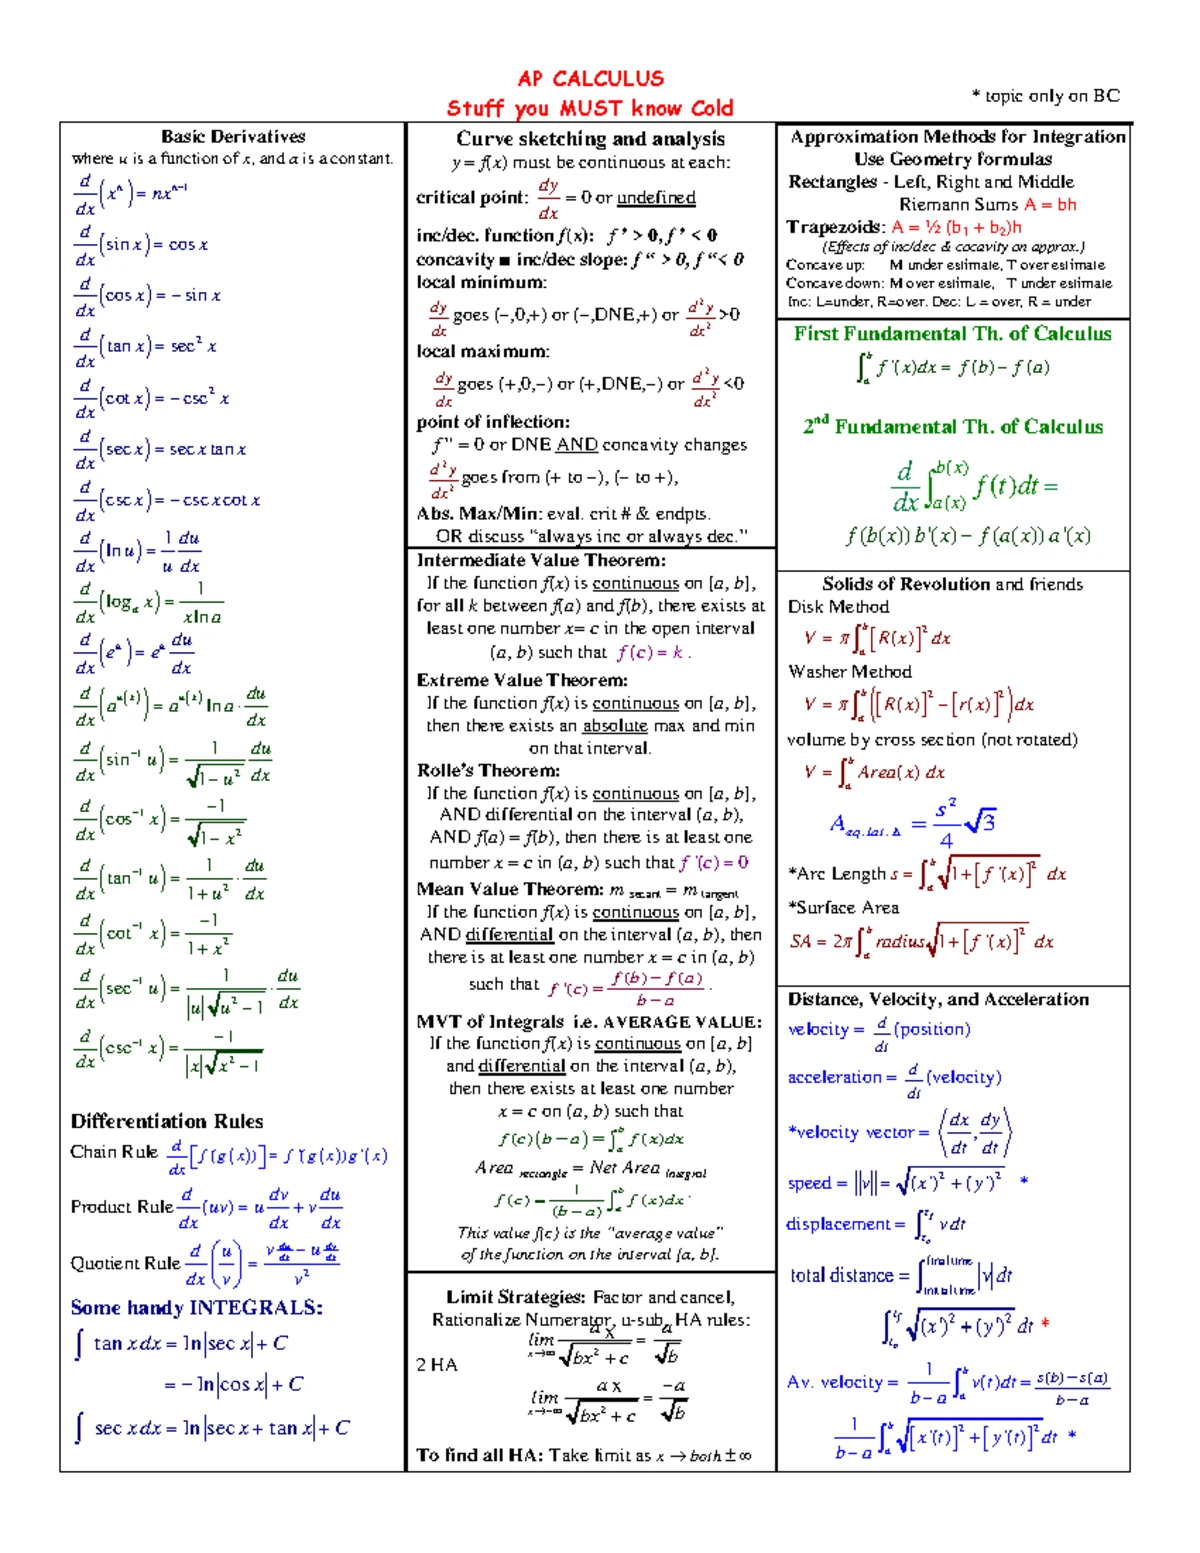 AP CALCULUS
Stuff you MUST know Cold
* topic only on BC
Basic Derivatives
where u is a function of x, and a is a constant.
d/dx (xⁿ) = nxⁿ⁻¹
d/dx (sin x) = cos x
d/dx (cos x) = − sin x
d/dx (tan x) = sec² x
d/dx (cot x) = − csc² x
d/dx (sec x) = sec x tan x
d/dx (csc x) = − csc x cot x
d/dx (ln u) = 1/u du/dx
d/dx (logₐ x) = 1/(x ln a)
d/dx (eᵘ) = eᵘ du/dx
d/dx (a^u(x)) = a^u(x) ln a · du/dx
d/dx (sin⁻¹ u) = 1/√(1 − u²) du/dx
d/dx (cos⁻¹ x) = −1/√(1 − x²)
d/dx (tan⁻¹ u) = 1/(1 + u²) · du/dx
d/dx (cot⁻¹ x) = −1/(1 + x²)
d/dx (sec⁻¹ u) = 1/(|u|√(u² − 1)) · du/dx
d/dx (csc⁻¹ x) = −1/(|x|√(x² − 1))
Differentiation Rules
Chain Rule d/dx [f(g(x))] = f '(g(x))g '(x)
Product Rule d/dx (uv) = u dv/dx + v du/dx
Quotient Rule d/dx (u/v) = (v du/dx − u dv/dx)/v²
Some handy INTEGRALS:
∫ tan x dx = ln|sec x| + C
= − ln|cos x| + C
∫ sec x dx = ln|sec x + tan x| + C
Curve sketching and analysis
y = f(x) must be continuous at each:
critical point: dy/dx = 0 or undefined
inc/dec. function f(x): f ' > 0, f ' < 0
concavity ■ inc/dec slope: f “ > 0, f “< 0
local minimum:
dy/dx goes (−,0,+) or (−,DNE,+) or d²y/dx² >0
local maximum:
dy/dx goes (+,0,−) or (+,DNE,−) or d²y/dx² <0
point of inflection:
f '' = 0 or DNE AND concavity changes
d²y/dx² goes from (+ to −), (− to +),
Abs. Max/Min: eval. crit # & endpts.
OR discuss “always inc or always dec.”
Intermediate Value Theorem:
If the function f(x) is continuous on [a, b],
for all k between f(a) and f(b), there exists at
least one number x= c in the open interval
(a, b) such that f(c) = k .
Extreme Value Theorem:
If the function f(x) is continuous on [a, b],
then there exists an absolute max and min
on that interval.
Rolle’s Theorem:
If the function f(x) is continuous on [a, b],
AND differential on the interval (a, b),
AND f(a) = f(b), then there is at least one
number x = c in (a, b) such that f '(c) = 0
Mean Value Theorem: m secant = m tangent
If the function f(x) is continuous on [a, b],
AND differential on the interval (a, b), then
there is at least one number x = c in (a, b)
such that f '(c) = (f(b) − f(a))/(b − a) .
MVT of Integrals i.e. AVERAGE VALUE:
If the function f(x) is continuous on [a, b]
and differential on the interval (a, b),
then there exists at least one number
x = c on (a, b) such that
f(c)(b − a) = ∫ₐᵇ f(x)dx
Area rectangle = Net Area integral
f(c) = 1/(b − a) ∫ₐᵇ f(x)dx .
This value f(c) is the “average value”
of the function on the interval [a, b].
Limit Strategies: Factor and cancel,
Rationalize Numerator, u-sub, HA rules:
lim x→∞ ax/√(bx² + c) = a/√b
2 HA
lim x→−∞ ax/√(bx² + c) = −a/√b
To find all HA: Take limit as x → both ± ∞
Approximation Methods for Integration
Use Geometry formulas
Rectangles - Left, Right and Middle
Riemann Sums A = bh
Trapezoids: A = ½ (b₁ + b₂)h
(Effects of inc/dec & cocavity on approx.)
Concave up: M under estimate, T over estimate
Concave down: M over estimate, T under estimate
Inc: L=under, R=over. Dec: L = over, R = under
First Fundamental Th. of Calculus
∫ₐᵇ f '(x)dx = f(b) − f(a)
2nd Fundamental Th. of Calculus
d/dx ∫_a(x)^b(x) f(t)dt =
f(b(x)) b'(x) − f(a(x)) a'(x)
Solids of Revolution and friends
Disk Method
V = π∫ₐᵇ [R(x)]² dx
Washer Method
V = π∫ₐᵇ ([R(x)]² − [r(x)]²)dx
volume by cross section (not rotated)
V = ∫ₐᵇ Area(x) dx
A eq.lat.Δ = s²/4 √3
*Arc Length s = ∫ₐᵇ √(1+[f '(x)]²) dx
*Surface Area
SA = 2π∫ₐᵇ radius√(1+[f '(x)]²) dx
Distance, Velocity, and Acceleration
velocity = d/dt (position)
acceleration = d/dt (velocity)
*velocity vector = ⟨dx/dt, dy/dt⟩
speed = ||v|| = √((x')² + (y')²) *
displacement = ∫_t₀^t_f v dt
total distance = ∫_initial time^final time |v| dt
∫_t₀^t_f √((x')² + (y')²) dt *
Av. velocity = 1/(b − a) ∫ₐᵇ v(t)dt = (s(b) − s(a))/(b − a)
1/(b − a) ∫ₐᵇ √([x'(t)]² + [y'(t)]²) dt *